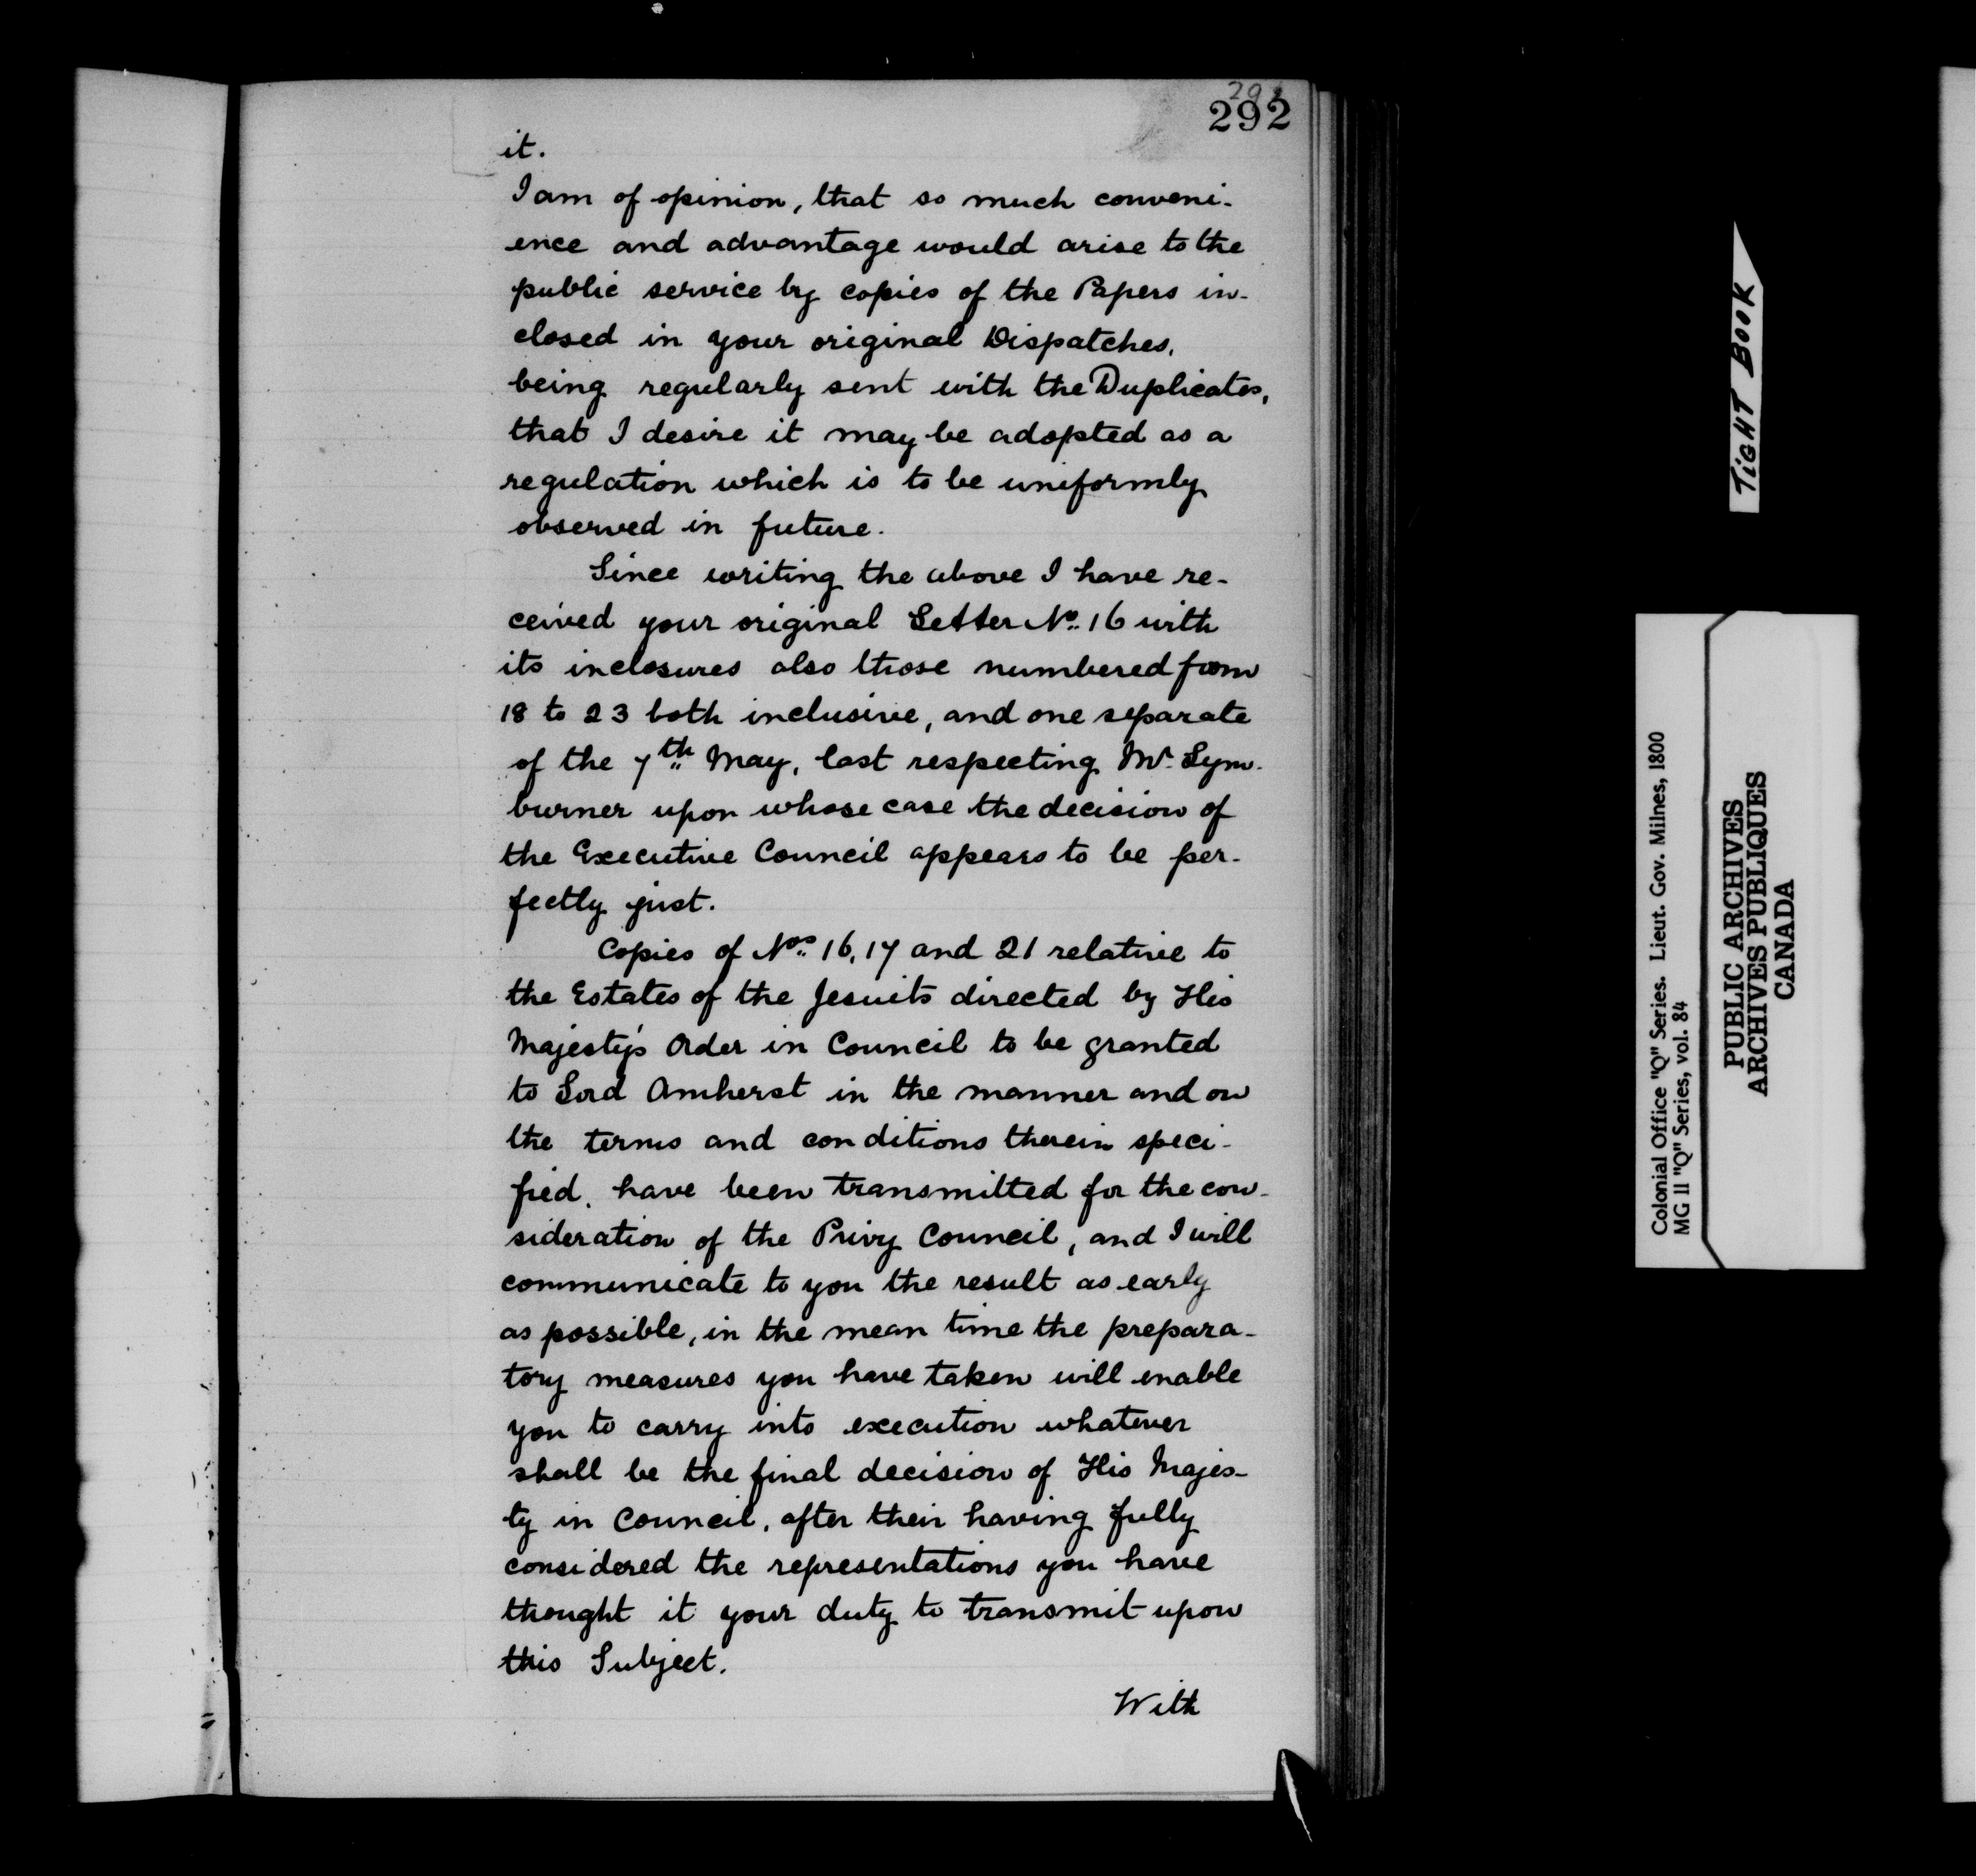 292
292
it.
I am of opinion, that so much conveni-
ence and advantage would arise to the
public service by copies of the Papers in-
closed in your original Dispatches,
being regularly sent with the Duplicates,
that I desire it may be adopted as a
regulation which is to be uniformly
observed in future.
Since writing the above I have re-
ceived your original Letter No. 16 with
its inclosures also those numbered from
18 to 23 both inclusive, and one separate
of the 7th May, last respecting Mr. Lym-
burner upon whose case the decision of
the Executive Council appears to be per-
fectly just.
Copies of Nos. 16, 17 and 21 relative to
the Estates of the Jesuits directed by His
Majesty's Order in Council to be granted
to Lord Amherst in the manner and on
the terms and conditions therein speci-
fied, have been transmitted for the con-
sideration of the Privy Council, and I will
communicate to you the result as early
as possible, in the mean time the prepara-
tory measures you have taken will enable
you to carry into execution whatever
shall be the final decision of His Majes-
ty in Council, after their having fully
considered the representations you have
thought it your duty to transmit upon
this Subject.
With
TIGHT BOOK
Colonial Office "Q" Series. Lieut. Gov. Milnes, 1800
MG 11 "Q" Series, vol. 84
PUBLIC ARCHIVES
ARCHIVES PUBLIQUES
CANADA